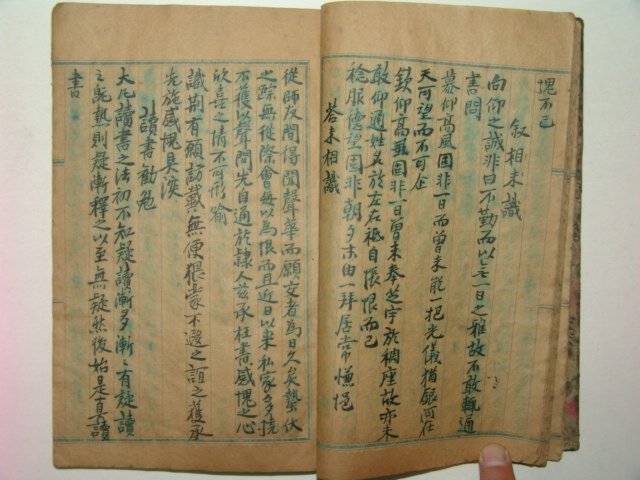 愧不已
叙相未識
向仰之誠非曰不勤而以無一日之雅故不敢輒通
書問
慕仰高風固非一日而曾未能一把光儀猶銀河在
天可望而不可企
欽仰高風固非一日曾未奉芝宇於稠座故亦未
敢仰通姓名於左右祗自悵恨而已
稔服德望固非朝夕末由一拜居常慊悒
答未相識
從師友間得聞聲華而願交者為日久矣蟄伏
之踪無從際會每以為恨而且近日以来私家多撓
不獲以聲聞先自通於隷人玆承枉書感愧之心
欣喜之情不可形喻
識荊有願訪戴無便猥蒙不遐之誼之獲承
先施感愧具深
讀書勸勉
大凡讀書之法初不知疑讀漸多漸〻有疑讀
之旣熟則疑漸釋之以至無疑然後始是真讀
書